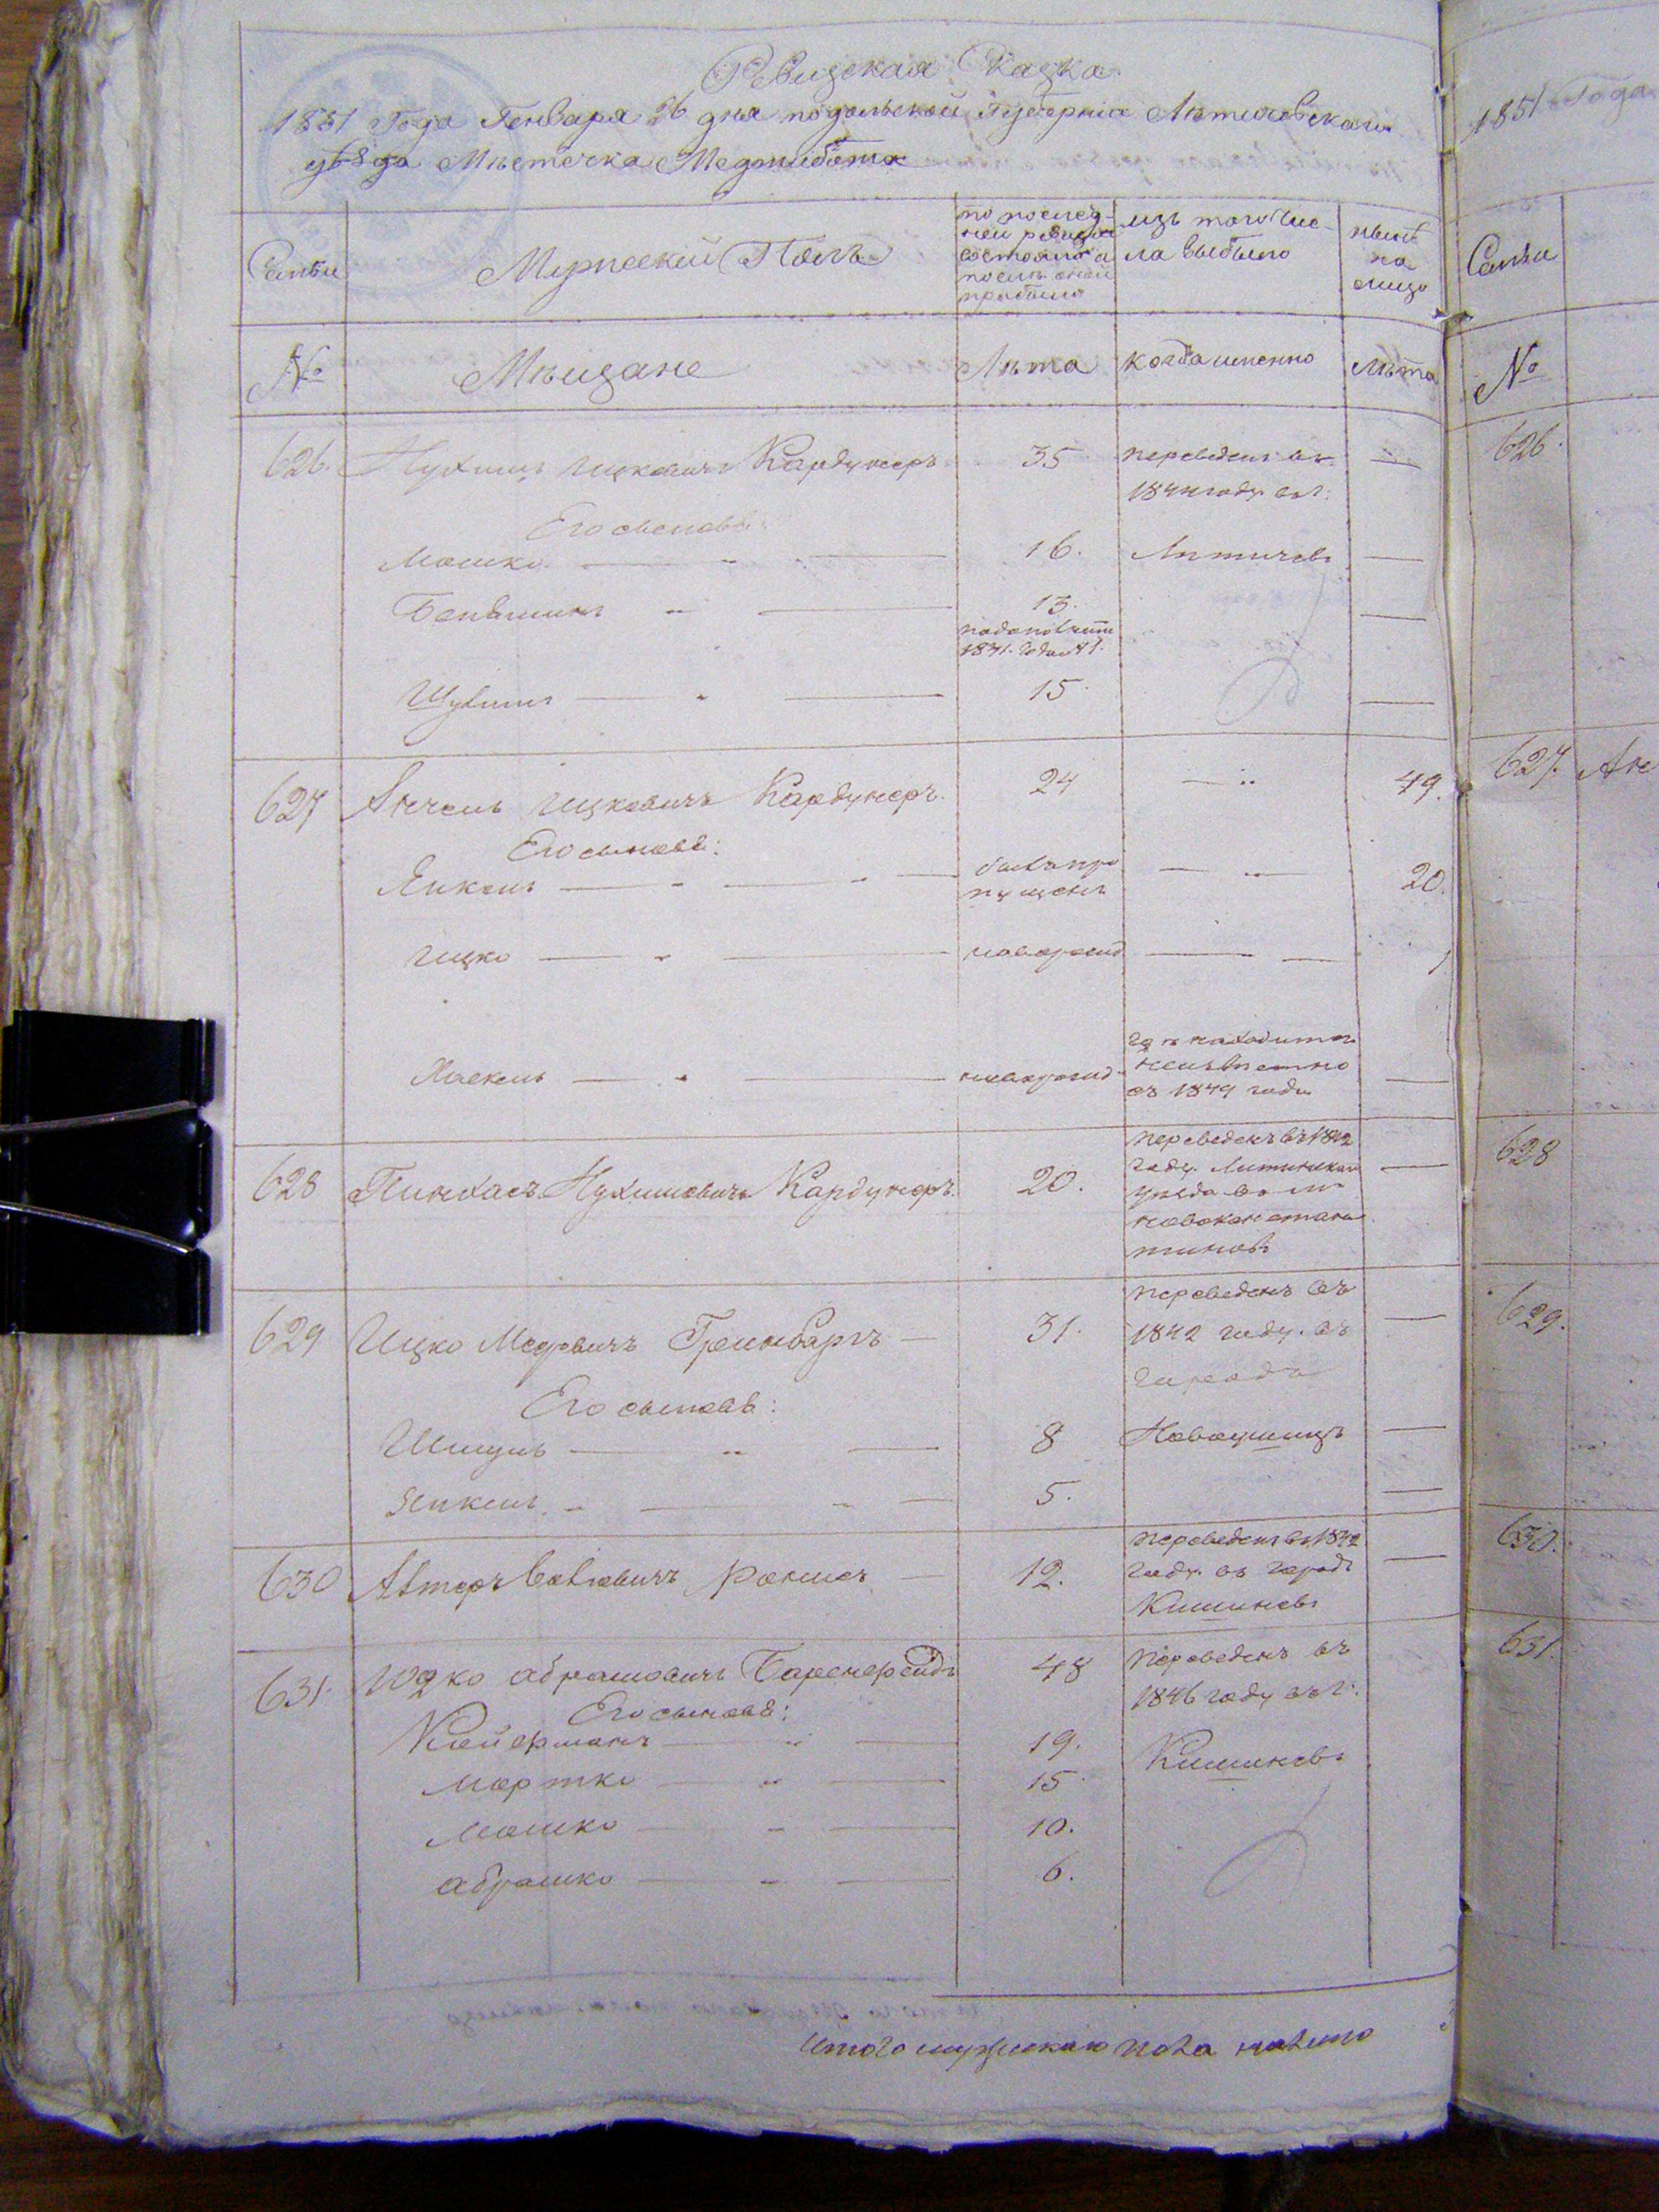 Ревизская Сказка
1851 Года Генваря 26 дня подольской Губернiи Летичевскаго
уезда Местечка Меджибожа
Семьи
Мужескiй Полъ
по послед-
ней ревизiи
состояло и
после оной
прибыло
изъ того чис-
ла выбыло
ныне
на
лицо
№
Мещане
Лета
когда именно
лета
626. Нухимъ Ицковичъ Кардунеръ 35 переведенъ въ —
1844 году въ г:
Его сыновья:
Мошко 16. Летичевъ —
Беньминъ 13. —
15 —
627 Анчель Ицковичъ Кардунеръ. 24 — 49.
Его сыновья:
Янкель былъ про 20.
пущенъ
Ицко новорожд 1
Хаскель новорожд
где находится
неизвестно
съ 1849 года
—
628 Пинхасъ Нухимовичъ Кардунеръ. 20. —
переведенъ въ 1842
году. Литинскаго
уезда въ м
новоконстан
тиновъ
629 Ицко Мееровичъ Гринбаргъ — 31. —
переведенъ въ
1842 году. въ
городъ
Его сыновья:
Шмуль 8 Новоушицъ —
Янкель 5. —
630 12. —
переведенъ въ 1842
году. въ городъ
Кишиневъ
631. Юдко Абрамовичъ 48 переведенъ въ
1846 году въ г:
Его сыновья:
19. Кишиневъ
Мортко 15
Мошко 10.
Абрамко 6.
Итого мужескаго пола налицо
1851 Года
Семьи
№
626.
627. Ан
628
629.
630.
631.